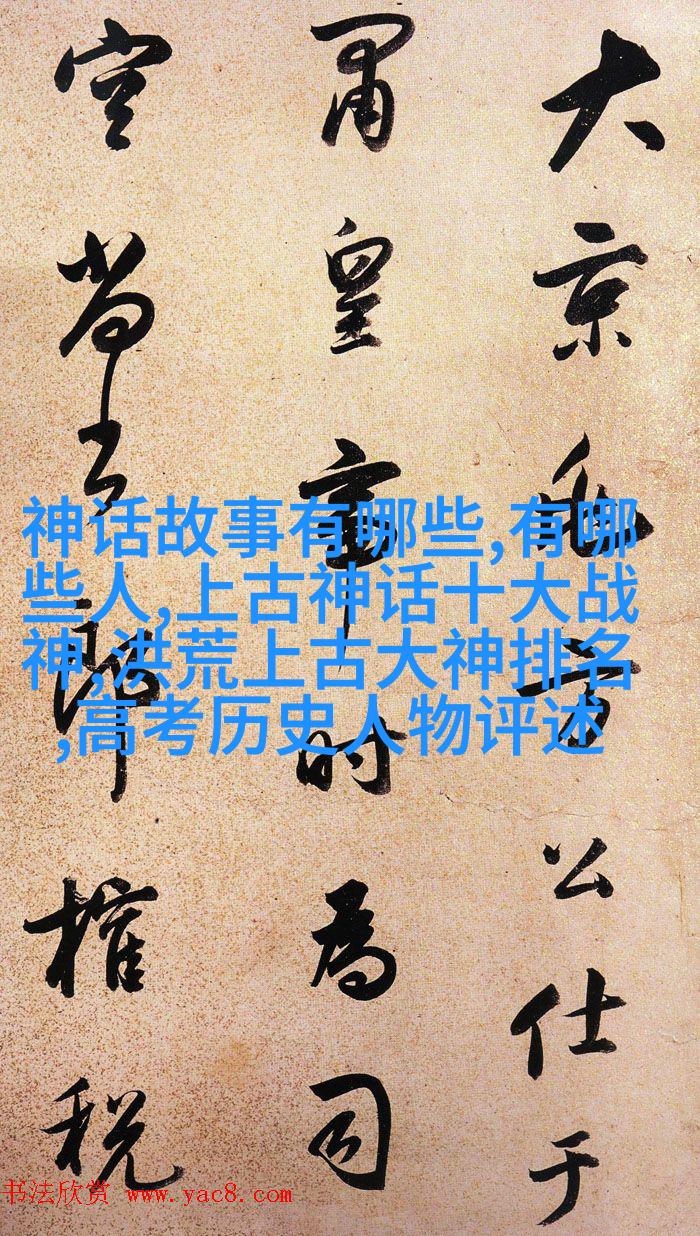 大京兆方公仕于
肃皇帝时为司
空尚书郎榷税
神话故事有哪些,有哪
些人,上古神话十大战
神,洪荒上古大神排名
,高考历史人物评述
书法欣赏 www.yac8.com